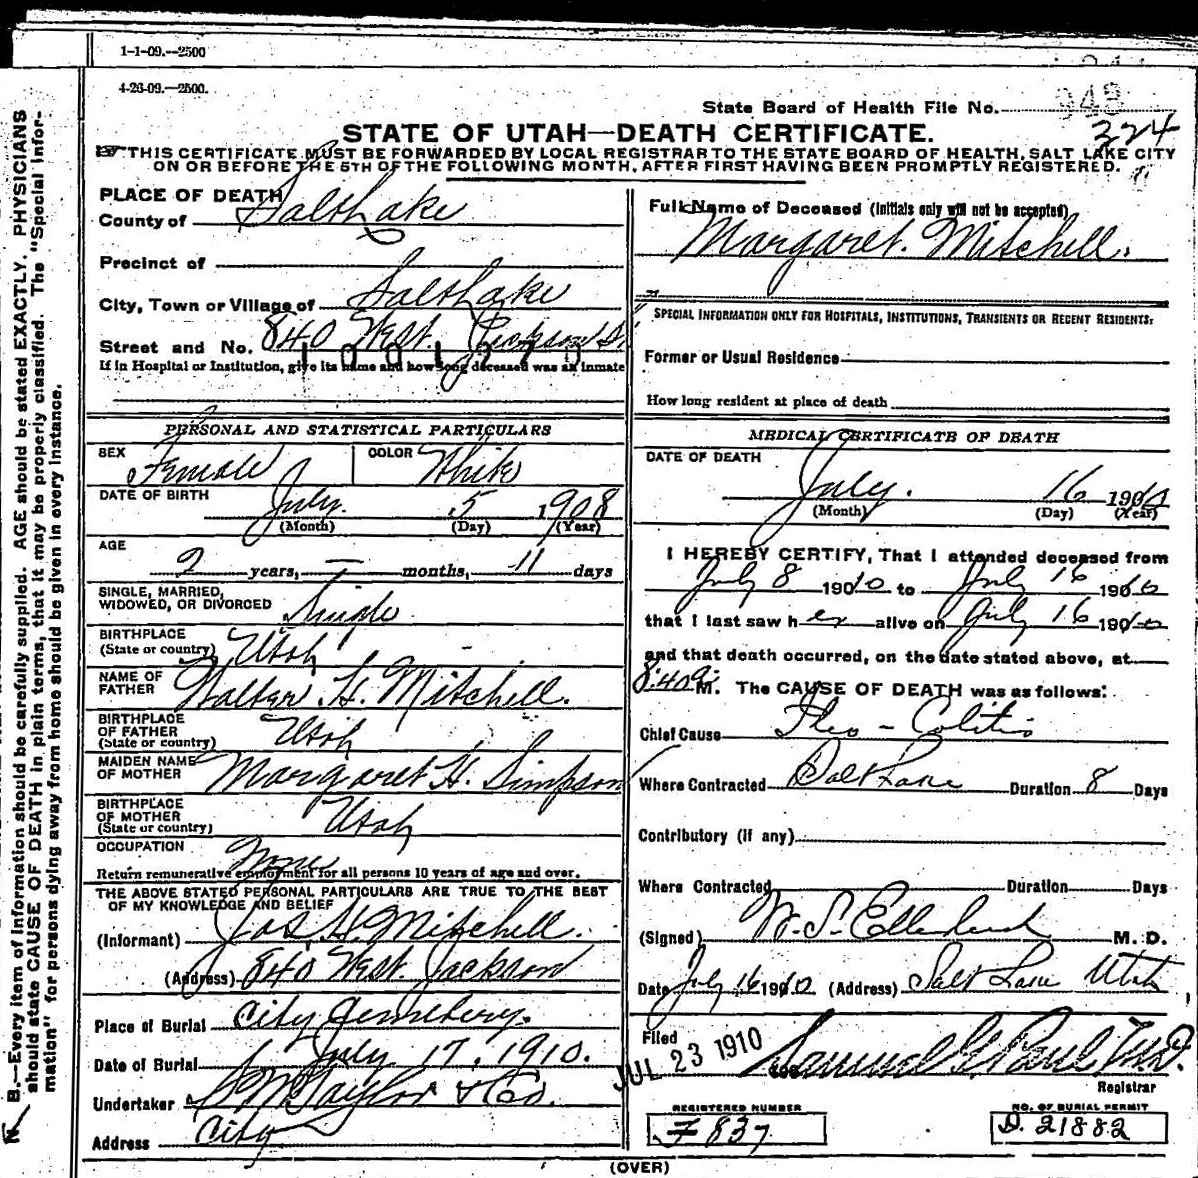 1-1-09.—2500
4-26-09.—2500.
State Board of Health File No. 943
324
STATE OF UTAH—DEATH CERTIFICATE.
THIS CERTIFICATE MUST BE FORWARDED BY LOCAL REGISTRAR TO THE STATE BOARD OF HEALTH, SALT LAKE CITY
ON OR BEFORE THE 5TH OF THE FOLLOWING MONTH, AFTER FIRST HAVING BEEN PROMPTLY REGISTERED.
N. B.—Every item of information should be carefully supplied. AGE should be stated EXACTLY. PHYSICIANS
should state CAUSE OF DEATH in plain terms, that it may be properly classified. The "Special Infor-
mation" for persons dying away from home should be given in every instance.
PLACE OF DEATH
County of Salt Lake
Precinct of
City, Town or Village of Salt Lake
Street and No. 840 West. Jackson St.
1001270
If in Hospital or Institution, give its name and how long deceased was an inmate
PERSONAL AND STATISTICAL PARTICULARS
SEX Female COLOR White
DATE OF BIRTH July. 5 1908
(Month) (Day) (Year)
AGE
2 years, — months, 11 days
SINGLE, MARRIED,
WIDOWED, OR DIVORCED Single
BIRTHPLACE
(State or country) Utah
NAME OF
FATHER Walter. H. Mitchell.
BIRTHPLACE
OF FATHER
(State or country) Utah
MAIDEN NAME
OF MOTHER Margaret H. Simpson
BIRTHPLACE
OF MOTHER
(State or country) Utah
OCCUPATION None
Return remunerative employment for all persons 10 years of age and over.
THE ABOVE STATED PERSONAL PARTICULARS ARE TRUE TO THE BEST
OF MY KNOWLEDGE AND BELIEF
(Informant) Jas. H. Mitchell.
(Address) 840 West. Jackson
Place of Burial City Cemetery.
Date of Burial July 17, 1910.
Undertaker S. M. Taylor & Co.
Address City
Full Name of Deceased (Initials only will not be accepted)
Margaret. Mitchell.
SPECIAL INFORMATION ONLY FOR HOSPITALS, INSTITUTIONS, TRANSIENTS OR RECENT RESIDENTS:
Former or Usual Residence
How long resident at place of death
MEDICAL CERTIFICATE OF DEATH
DATE OF DEATH
July. 16 1910
(Month) (Day) (Year)
I HEREBY CERTIFY, That I attended deceased from
July 8 1910 to July 16 1910
that I last saw her alive on July 16 1910
and that death occurred, on the date stated above, at
8:40 a M. The CAUSE OF DEATH was as follows:
Chief Cause Ileo-Colitis
Where Contracted Salt Lake Duration 8 Days
Contributory (if any)
Where Contracted Duration Days
(Signed) W. S. Ellerbeck M. D.
Date July 16 1910. (Address) Salt Lake Utah
Filed
JUL 23 1910
Samuel G. Paul M.D.
Registrar
REGISTERED NUMBER
F 837
NO. OF BURIAL PERMIT
D. 21882
(OVER)